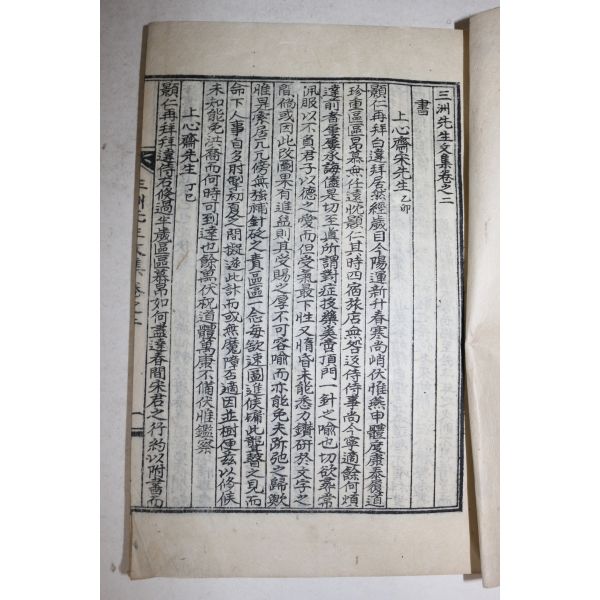 三洲先生文集卷之二
書
上心齋宋先生 乙卯
顯仁再拜白違拜居然經歲目今陽運新升春寒尚峭伏惟燕申體度康泰履道
珍重區區昂慕無任遠忱顯仁其時四宿旅店無咎返侍侍事尚今寧適餘何煩
達前者重重承誨儘是切至眞所謂對症投藥奚啻頂門一針之喩也切欲尋常
佩服以不負君子以德之愛而但受氣最下性又惰昏未能悉力鑽研於文字之
階倘或因此改圖果有進益則其受賜之厚不可容喩而亦能免夫跡弛之歸歟
惟是索居兀兀修無強補針砭之責區區一念每欲速圖進候痛此聾瞽之見而
命下人事自多肘掣初夏之間擬遂此計而或無魔障否適因並樹便茲以修候
未知能免洪喬而何時可到達也餘萬伏祝道體萬康不備伏惟鑑察
上心齋先生 丁巳
顯仁再拜拜違侍右倏過半歲區區慕昂如何盡達春間宋君之行約以附書而
三洲先生文集 卷之二 一